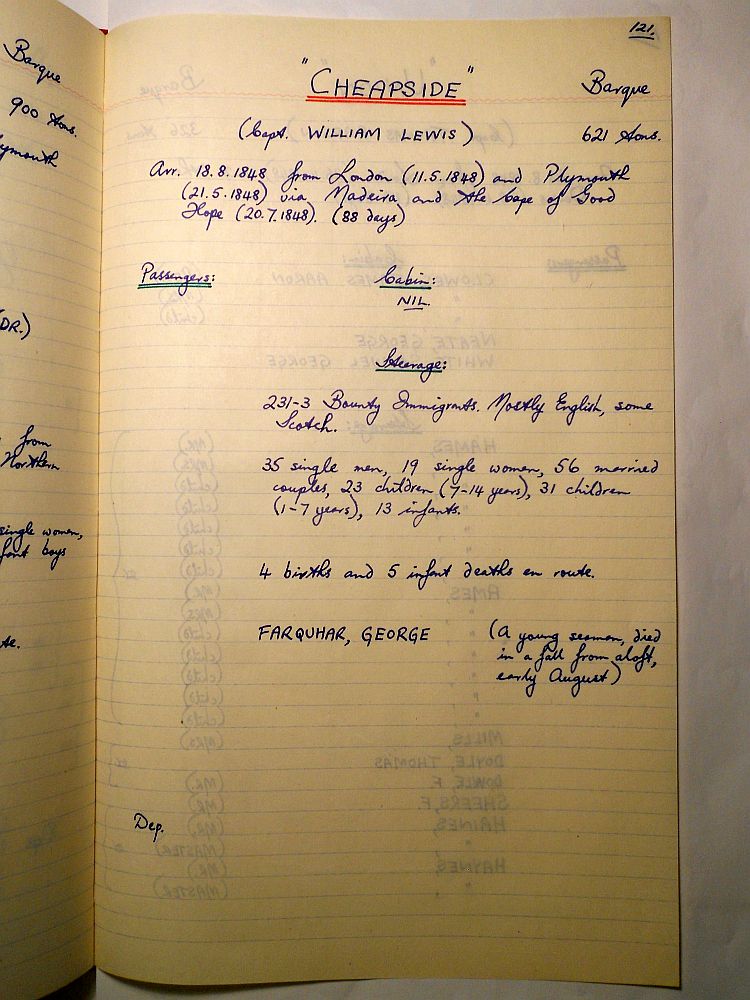 Barque
900 tons.
ymouth
DR.)
from
Northern
single women,
fant boys
te.
121.
"CHEAPSIDE"
Barque
(Capt. WILLIAM LEWIS)
621 tons.
Arr. 18.8.1848 from London (11.5.1848) and Plymouth
(21.5.1848) via Madeira and the Cape of Good
Hope (20.7.1848). (88 days)
Passengers:
Cabin:
NIL.
Steerage:
231-3 Bounty Immigrants. Mostly English, some
Scotch.
35 single men, 19 single women, 56 married
couples, 23 children (7-14 years), 31 children
(1-7 years), 13 infants.
4 births and 5 infant deaths en route.
FARQUHAR, GEORGE
(A young seaman, died
in a fall from aloft,
early August)
Dep.